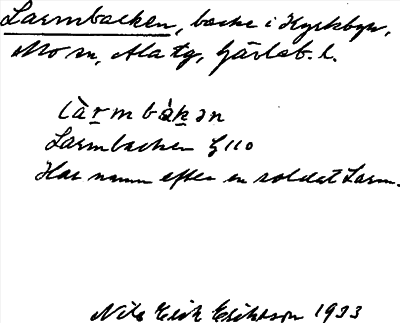 Larmbacken, backe i Kyrkbyn,
Mo sn, Ala tg, Gävleb. l.
làrmbàkən
Larmbacken G110
Har namn efter en soldat Larm.
Nils Erik Eriksson 1933